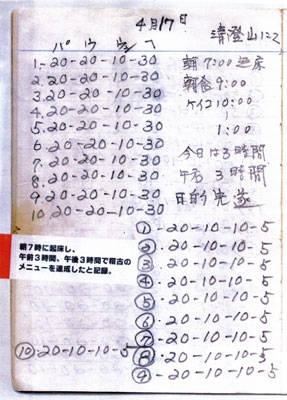 4月17日
清澄山にて
パ ウ ウェ ヘ
1.-20-20-10-30
2.-20-20-10-30
3.20-20-10-30
4.20-20-10-30
5.-20-20-10-30
6.20-20-10-30
7.20-20-10-30
8.-20-20-10-30
9.-20-20-10-30
10.20-20-10-30
朝7:00起床
朝食9:00
ケイコ10:00
〜
1:00
今日は3時間
午后 3時間
目的完遂
朝7時に起床し、
午前3時間、午後3時間で稽古の
メニューを達成したと記録。
①.-20-10-10-5
②.-20-10-10-5
③.-20-10-10-5
④.-20-10-10-5
⑤-20-10-10-5
⑥.-20-10-10-5
⑦-20-10-10-5
⑧.-20-10-10-5
⑨-20-10-10-5
⑩.20-10-10-5